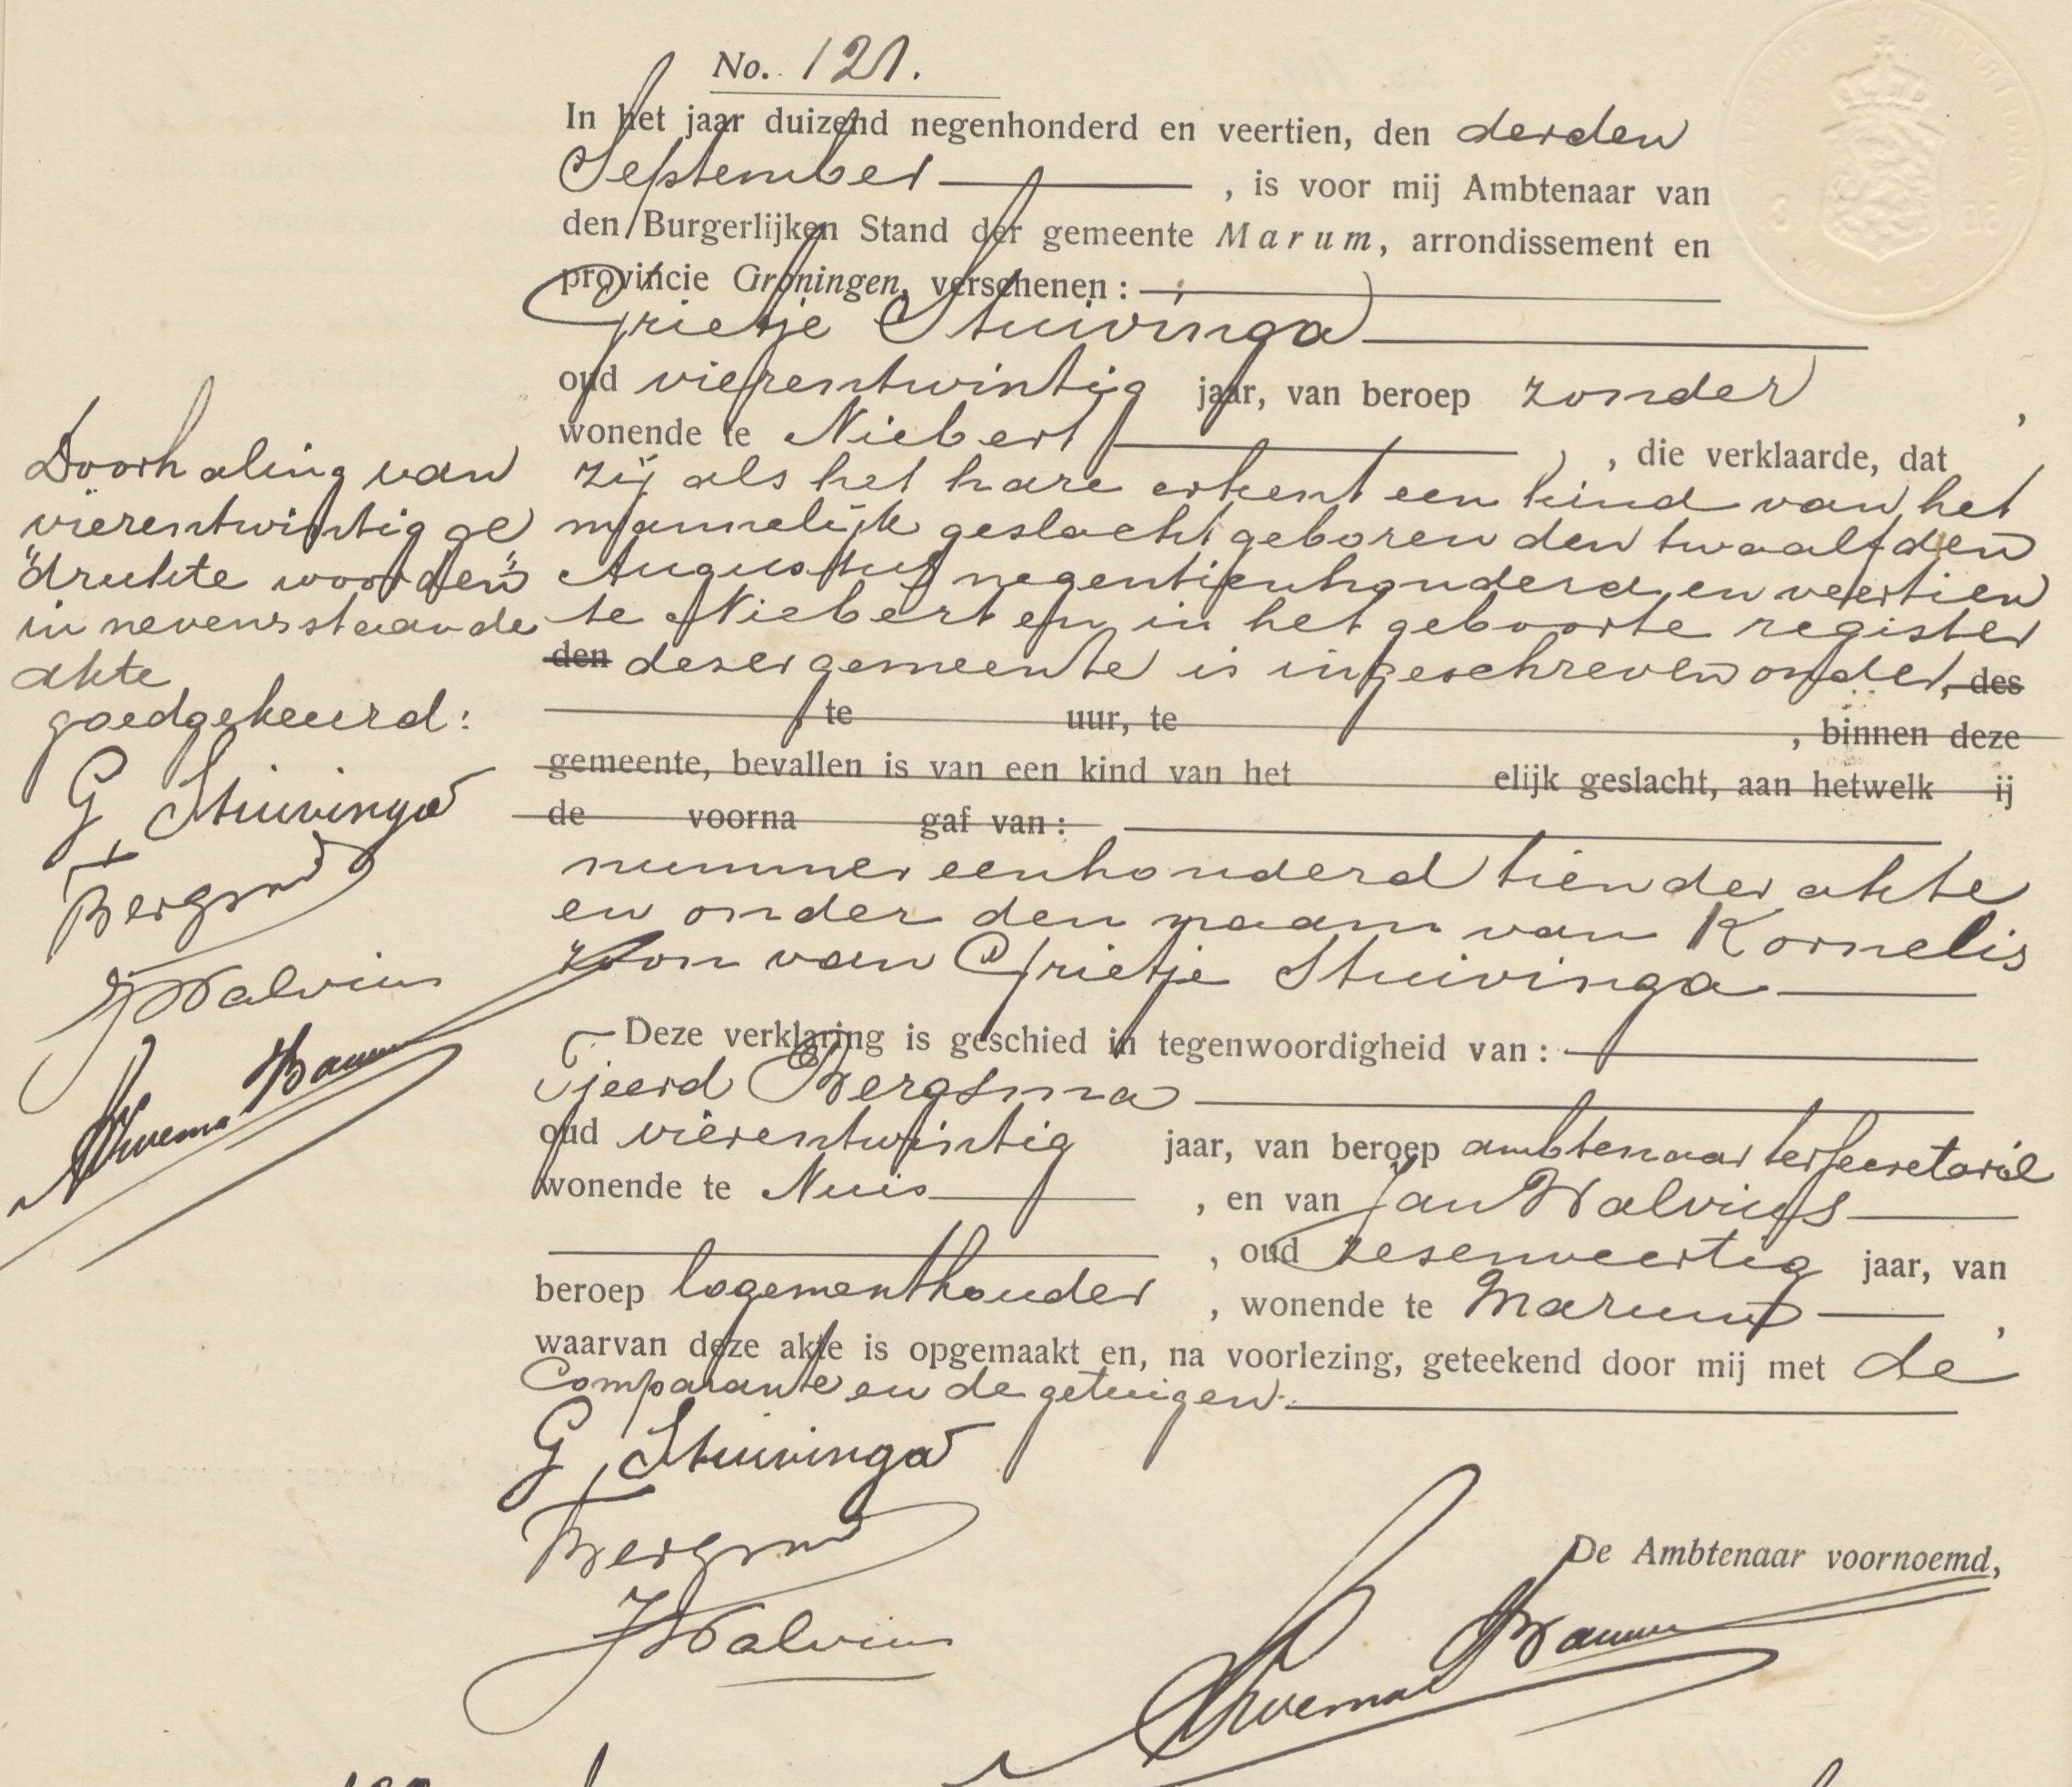 No. 121.
In het jaar duizend negenhonderd en veertien, den derden
September , is voor mij Ambtenaar van
den Burgerlijken Stand der gemeente Marum, arrondissement en
provincie Groningen, verschenen :
Grietje Stuivinga
oud vierentwintig jaar, van beroep zonder ,
wonende te Niebert , die verklaarde, dat
zij als het hare erkent een kind van het
mannelijk geslacht geboren den twaalfden
Augustus negentienhonderd en veertien
te Niebert en in het geboorte register
den dezer gemeente is ingeschreven onder, des
, te uur, te , binnen deze
gemeente, bevallen is van een kind van het elijk geslacht, aan hetwelk ij
de voorna gaf van :
nummer eenhonderd tien der akte
en onder den naam van Kornelis
zoon van Grietje Stuivinga
Deze verklaring is geschied in tegenwoordigheid van :
Tjeerd Bergsma
oud vierentwintig jaar, van beroep ambtenaar ter secretarie
wonende te Nuis , en van Jan Walvius
, oud zesenveertig jaar, van
beroep logementhouder , wonende te Marum ,
waarvan deze akte is opgemaakt en, na voorlezing, geteekend door mij met de
Comparante en de getuigen.
G Stuivinga
T Bergsma
J Walvius
De Ambtenaar voornoemd,
Doorhaling van
vierentwintig ge
"drukte woorden"
in nevensstaande
akte
goedgekeurd:
G Stuivinga
T Bergsma
J Walvius